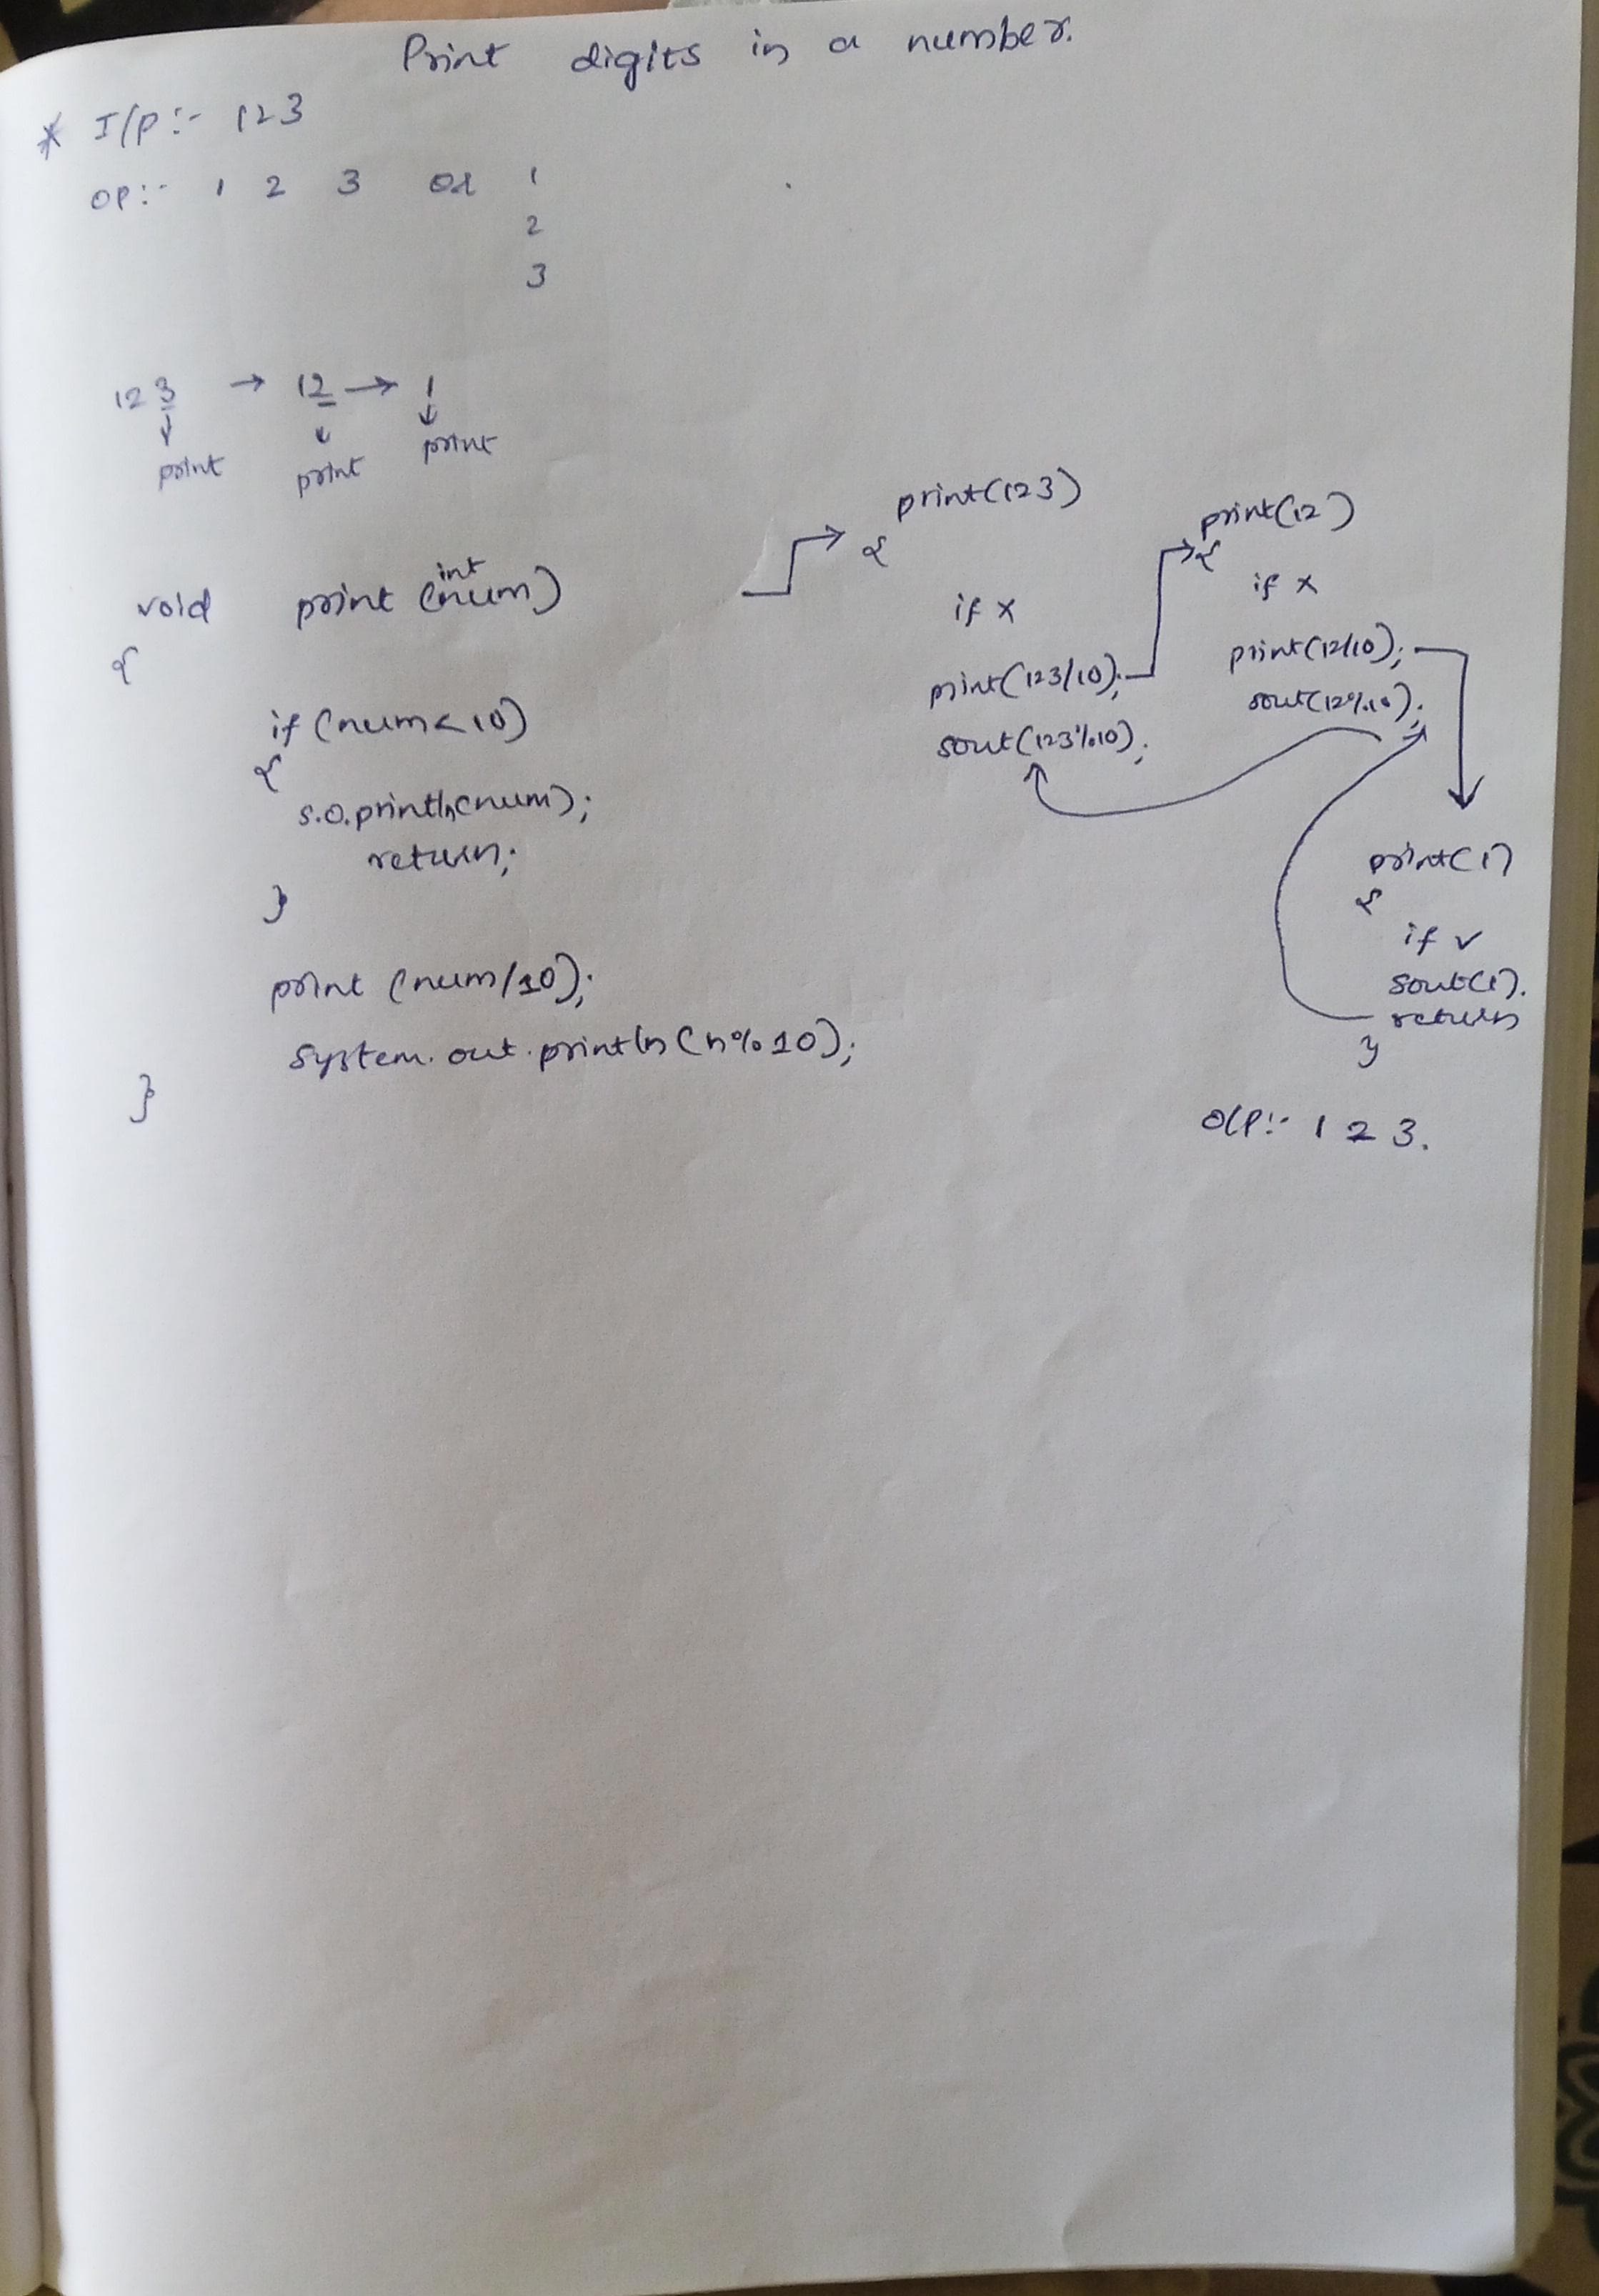 Print digits in a number.
* I/p :- 123
op :- 1 2 3 or 1
2
3
123 → 12 → 1
↓ ↓ ↓
print print print
void print (int num)
{
if (num < 10)
{
s.o.println(num);
return;
}
print (num/10);
System.out.println (n%10);
}
print(123)
{
if x
print(123/10);
sout(123%10);
print(12)
{
if x
print(12/10);
sout(12%10);
print(1)
{
if ✓
sout(1).
return
}
O/P :- 1 2 3.